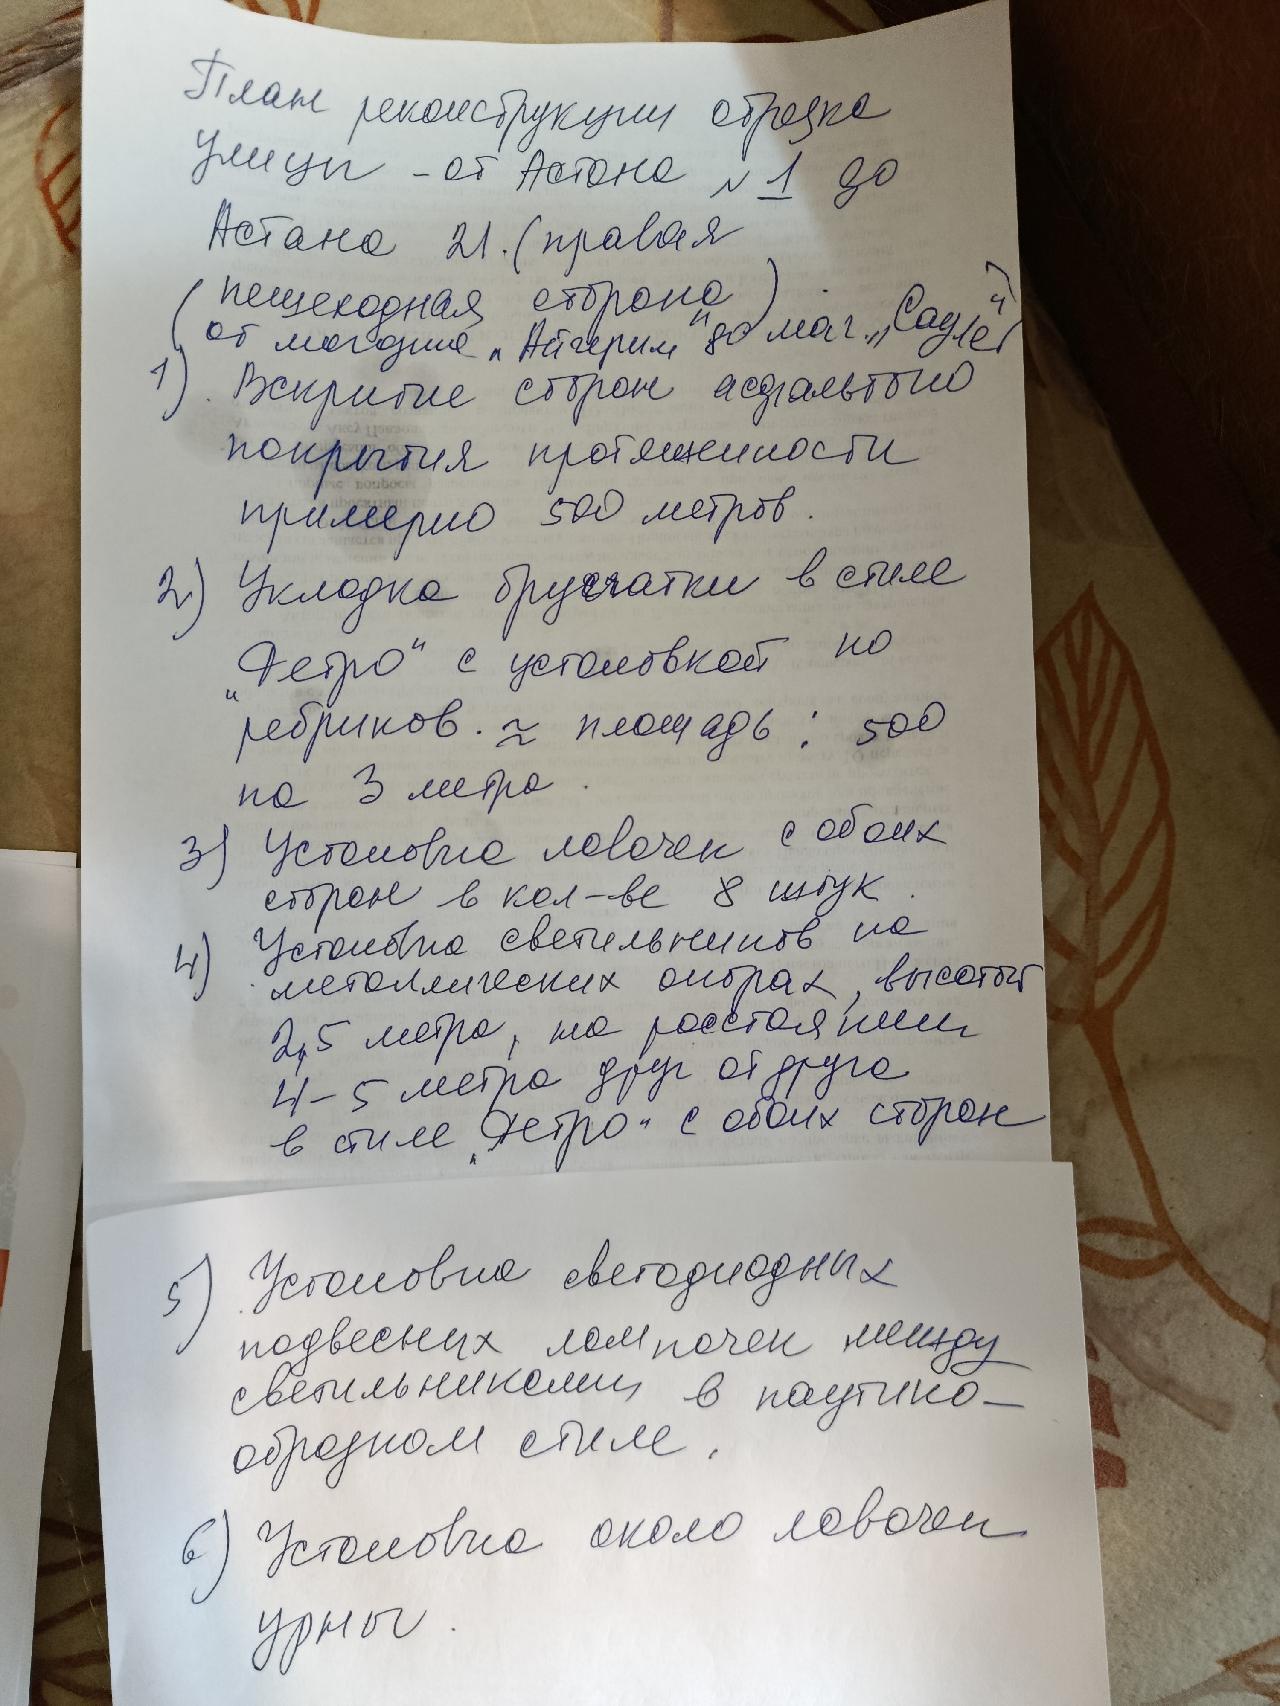 План реконструкции отрезка
улицы - от Астана № 1 до
Астана 21. (правая
пешеходная сторона)
(от магазина „Айгерим" до маг. „Сауле")
1) Вскрытие сторон асфальтно
покрытия протяженности
примерно 500 метров.
2) Укладка брусчатки в стиле
„Ретро" с установкой по
ребриков. ≈ площадь: 500
на 3 метра.
3) Установка лавочек с обоих
сторон в кол-ве 8 штук.
4) Установка светильников на
металлических опорах, высотой
2,5 метра, на расстоянии
4-5 метра друг от друга
в стиле „Ретро" с обоих сторон
5) Установка светодиодных
подвесных лампочек между
светильниками в паутино-
образном стиле.
6) Установка около лавочек
урны.